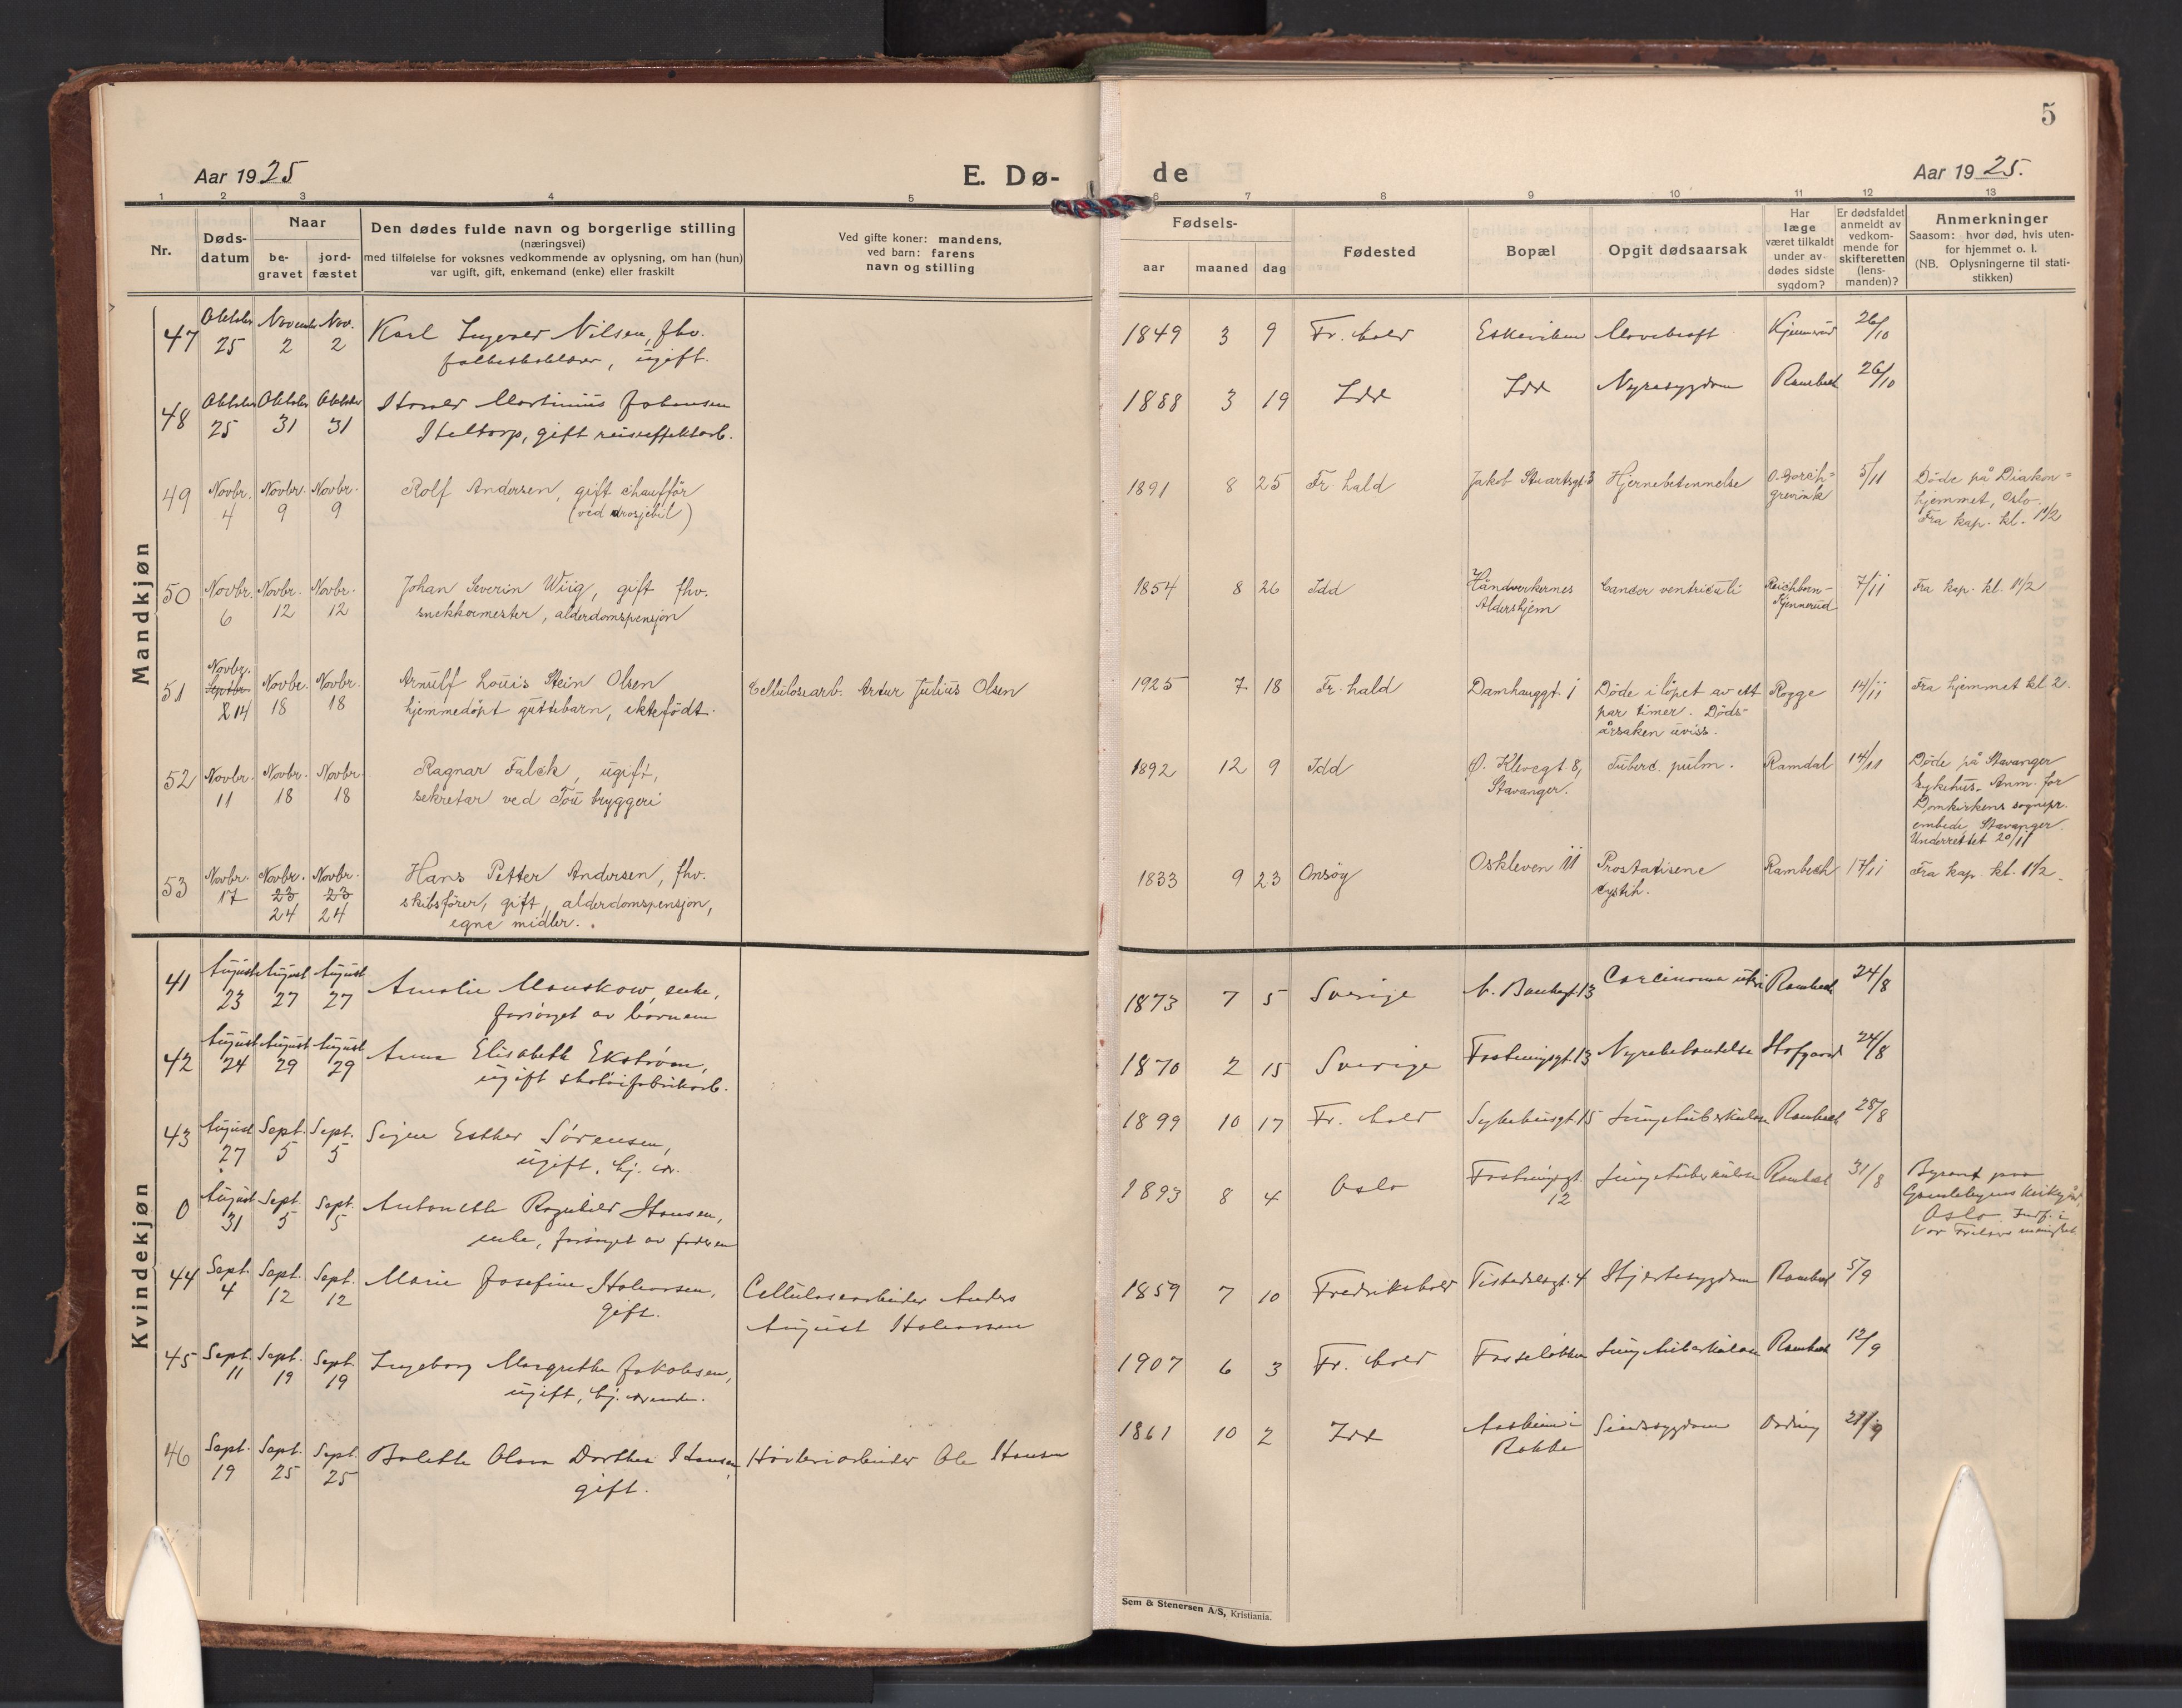 5
Aar 1925
E. Dø-
de
Aar 1925.
1 2 3 4 5 6 7 8 9 10 11 12 13
Nr.
Døds-
datum
Naar
be-
gravet
jord-
fæstet
Den dødes fulde navn og borgerlige stilling
(næringsvei)
med tilføielse for voksnes vedkommende av oplysning, om han (hun)
var ugift, gift, enkemand (enke) eller fraskilt
Ved gifte koner: mandens,
ved barn: farens
navn og stilling
Fødsels-
aar maaned dag
Fødested
Bopæl
Opgit dødsaarsak
Har
læge
været tilkaldt
under av-
dødes sidste
sygdom?
Er dødsfaldet
anmeldt av
vedkom-
mende for
skifteretten
(lens-
manden)?
Anmerkninger
Saasom: hvor død, hvis uten-
for hjemmet o. l.
(NB. Oplysningerne til stati-
stikken)
Mandkjøn
47 Oktober 25 November 2 Nov. 2 Karl Ingvald Nilsen, fhv.
folkeskolelærer, ugift.
1849 3 9 Fr.hald Eskeviken Kjennerud 26/10
48 Oktober 25 Oktober 31 Oktober 31 Harald Martinius Johansen
Heltorp, gift
1888 3 19 Idd Idd Nyresygdom Rambech 26/10
49 Novbr. 4 Novbr. 9 Novbr. 9 Rolf Andersen, gift chauffør
(ved drosjebil)
1891 8 25 Fr.hald Jakob Stuartsgt. 3 Hjernebetennelse O. Borch-
grevink 5/11 Døde på Diakon=
hjemmet, Oslo.
Fra kap. kl. 1 1/2
50 Novbr. 6 Novbr. 12 Novbr. 12 Johan Severin Wiig, gift fhv.
snekkermester, alderdomspensjon
1854 8 26 Idd Håndverkernes
Aldershjem Cancer ventriculi Reichborn-
Kjennerud 7/11 Fra kap. kl. 1 1/2
51 Novbr. Septbr. 14 Novbr. 18 Novbr. 18 Arnulf Louis Stein Olsen
hjemmedøpt guttebarn, ektefødt.
Cellulosearb. Artur Julius Olsen
1925 7 18 Fr.hald Damhauggt. 1 Døde i løpet av ett
par timer. Døds-
årsaken uviss. Rogge 14/11 Fra hjemmet kl 2.
52 Novbr. 11 Novbr. 18 Novbr. 18 Ragnar Falck, ugift,
sekretær ved Tou bryggeri
1892 12 9 Idd Ø. Klevegt. 8,
Stavanger. Tuberc. pulm. Ramdal 14/11 Døde på Stavanger
Sykehus. Anm. for
Domkirkens sognepr.
embede, Stavanger.
Underrettet 20/11
53 Novbr. 17 Novbr. 23 24 Novbr. 23 24 Hans Petter Andersen, fhv.
skibsfører, gift, alderdomspensjon,
egne midler.
1833 9 23 Onsøy Oskleven 11 Prostatisene
cystit. Rambech 17/11 Fra kap. kl. 1 1/2.
Kvindekjøn
41 August 23 August 27 August 27 Amalie Mauskow, enke,
forsørget av barnene
1873 7 5 Sverige Carcinoma uteri Rambech 24/8
42 August 24 August 29 August 29 Anna Elisabeth Ekstrøm,
ugift skotøifabrikarb.
1870 2 15 Sverige Fæstningsgt. 13 Nyrebetændelse Hofgaard 24/8
43 August 27 Sept. 5 Sept. 5 Signe Esther Sørensen,
ugift, hj. vær.
1899 10 17 Fr.hald Sykehusgt 15 Lungetuberkulose Rambech 28/8
0 August 31 Sept. 5 Sept. 5 Antonette Ragnhild Hansen,
enke, forsørget av faderen
1893 8 4 Oslo Fæstningsgt.
12 Lungetuberkulose Rambech 31/8
Gamlebyens kirkegård,
Oslo. Indf. i
Vor Frelsers menighet
44 Sept. 4 Sept. 12 Sept. 12 Marie Josefine Halvorsen,
gift.
Cellulosearbeider Anders
August Halvorsen
1859 7 10 Fredrikshald Tistedalsgt. 4 Hjertesygdom Rambech 5/9
45 Sept. 11 Sept. 19 Sept. 19 Ingeborg Margrethe Jakobsen,
ugift, hj. værende.
1907 6 3 Fr.hald Fosseløkken Lungetuberkulose Rambech 12/9
46 Sept. 19 Sept. 25 Sept. 25 Bolette Olava Dorthea Hansen,
gift.
Høvleriarbeider Ole Hansen
1861 10 2 Idd Aasheim i
Rokke Sindssygdom 21/9
Sem & Stenersen A/S, Kristiania.